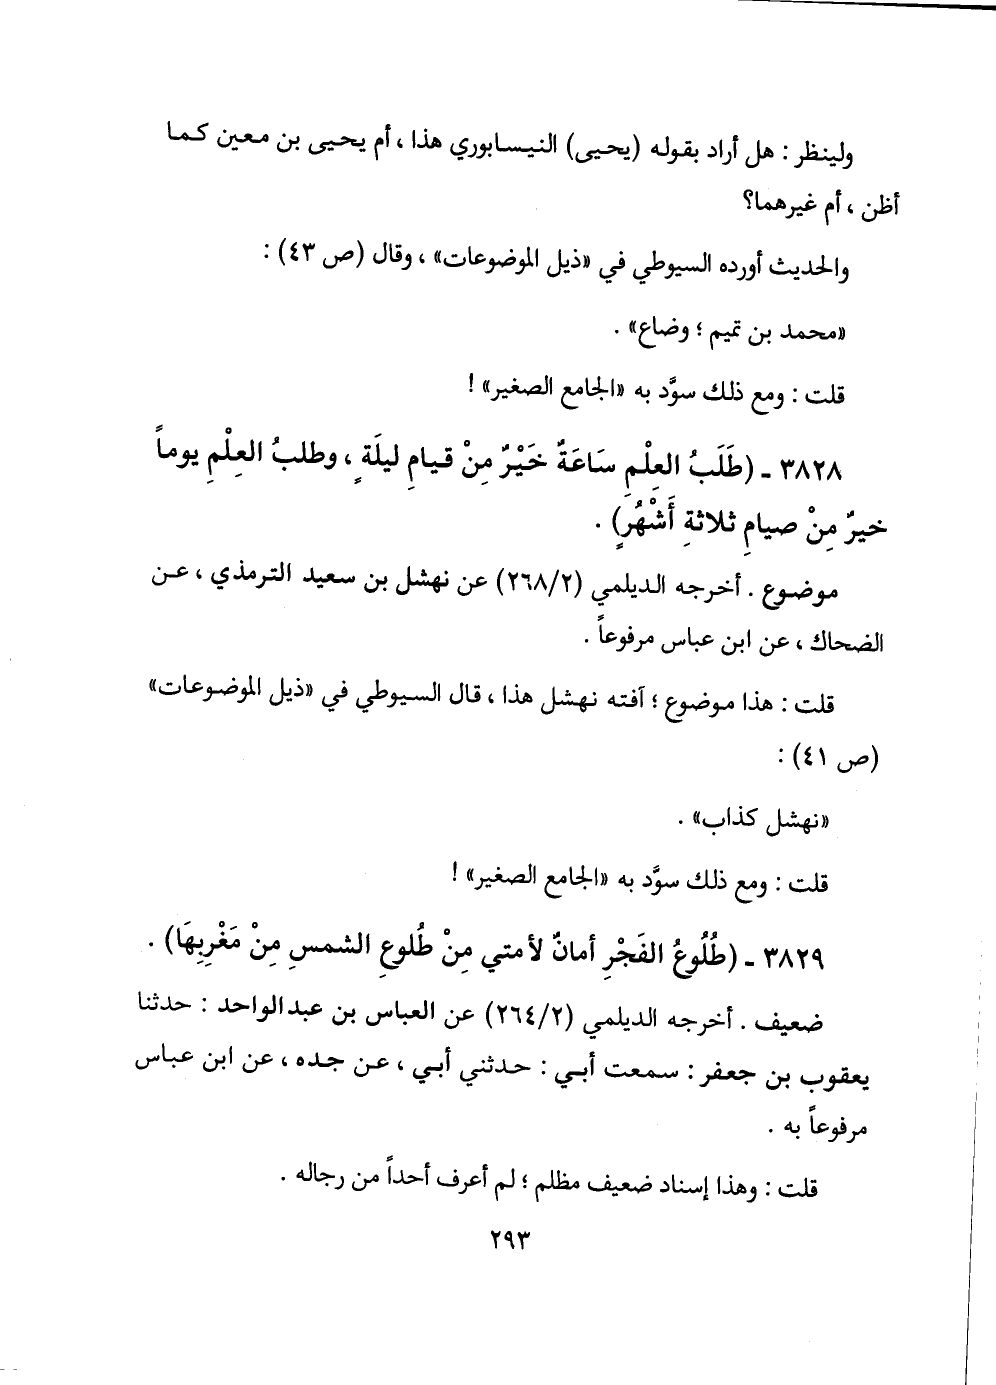 ولينظر : هل أراد بقوله (يحيى) النيسابوري هذا ، أم يحيى بن معين كما
أظن ، أم غيرهما؟
والحديث أورده السيوطي في «ذيل الموضوعات» ، وقال (ص ٤٣) :
«محمد بن تميم ؛ وضاع» .
قلت : ومع ذلك سوَّد به «الجامع الصغير» !
٣٨٢٨ ـ (طَلَبُ العِلْمِ سَاعَةً خَيْرٌ مِنْ قيامِ ليلَةٍ ، وطلبُ العِلْمِ يوماً
خيرٌ مِنْ صيامِ ثلاثةِ أَشْهُرٍ) .
موضوع . أخرجه الديلمي (٢/٢٦٨) عن نهشل بن سعيد الترمذي ، عن
الضحاك ، عن ابن عباس مرفوعاً .
قلت : هذا موضوع ؛ آفته نهشل هذا ، قال السيوطي في «ذيل الموضوعات»
(ص ٤١) :
«نهشل كذاب» .
قلت : ومع ذلك سوَّد به «الجامع الصغير» !
٣٨٢٩ ـ (طُلُوعُ الفَجْرِ أمانٌ لأمتي مِنْ طُلوعِ الشمسِ مِنْ مَغْرِبِهَا) .
ضعيف . أخرجه الديلمي (٢/٢٦٤) عن العباس بن عبدالواحد : حدثنا
يعقوب بن جعفر : سمعت أبي : حدثني أبي ، عن جده ، عن ابن عباس
مرفوعاً به .
قلت : وهذا إسناد ضعيف مظلم ؛ لم أعرف أحداً من رجاله .
٢٩٣